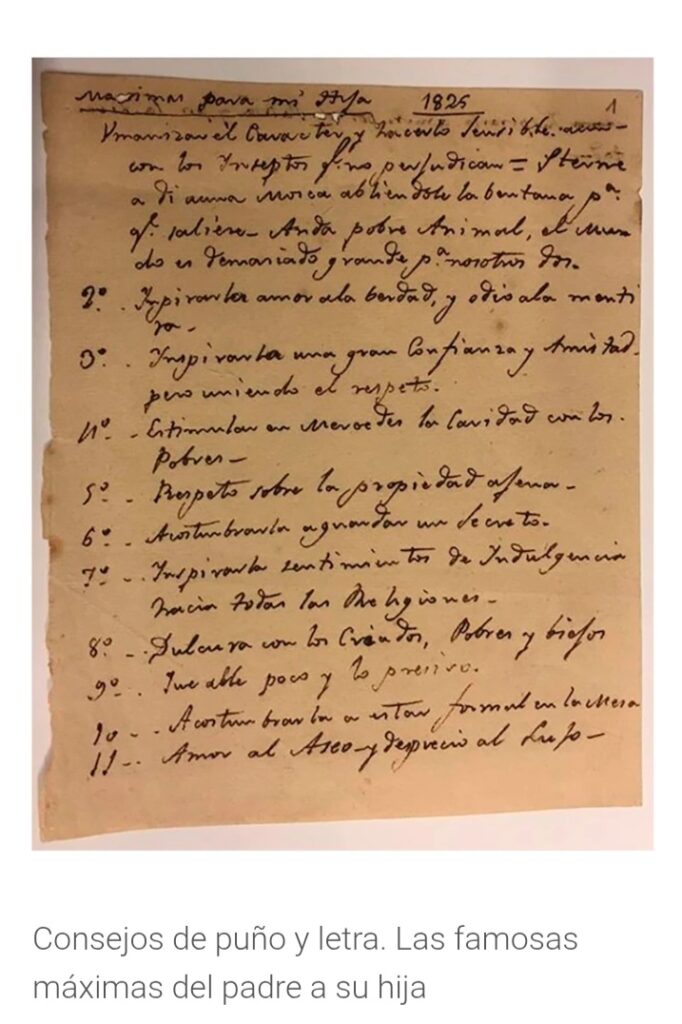 Maximas para mi Hija 1825 1
Ymanizar él Caracter, y hacerlo sensible aun
con los Inseptos qe. no perjudican = Sterne
a di auna Mosca abliendole la bentana pa.
qe. saliese – Anda pobre Animal, el Mun-
do es demaciado grande pa. nosotros dos.
2º . Inpirarla amor ala berdad, y odio ala menti
ra –
3º . Inspirarla una gran Confianza y Amistad
pero uniendo el respeto.
4º . – Estimular en Mercedes la Caridad con los
Pobres –
5º – Respeto sobre la propiedad ajena –
6º – Acostumbrarla a guardar un Secreto.
7º – Inspirarla sentimientos de Indulgencia
hacia todas las Religiones –
8º – Dulsura con los Criados, Pobres y biejos
9º . Que able poco y lo presiso.
10 – Acostumbrarla a estar formal en la Mesa
11 – Amor al Aseo y desprecio al Lujo –
Consejos de puño y letra. Las famosas
máximas del padre a su hija